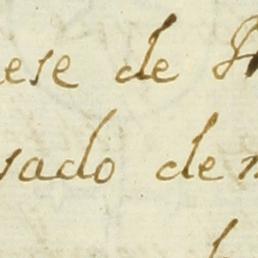 ese de
sado de